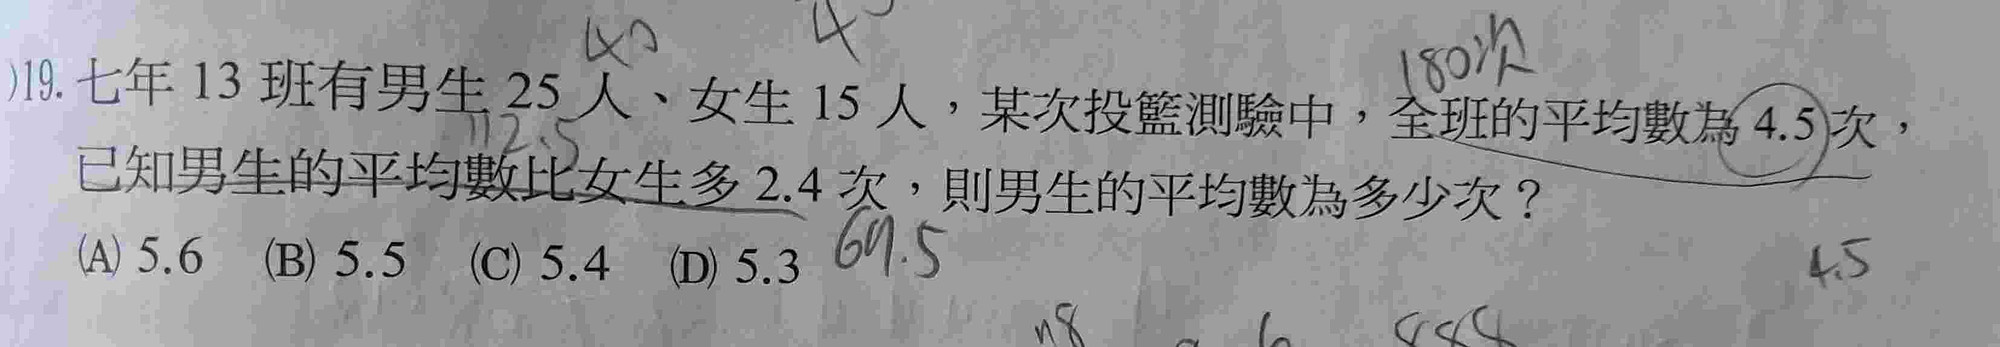 40
180次
)19. 七年 13 班有男生 25 人、女生 15 人，某次投籃測驗中，全班的平均數為 4.5 次，
112.5
已知男生的平均數比女生多 2.4 次，則男生的平均數為多少次？
(A) 5.6 (B) 5.5 (C) 5.4 (D) 5.3
4.5